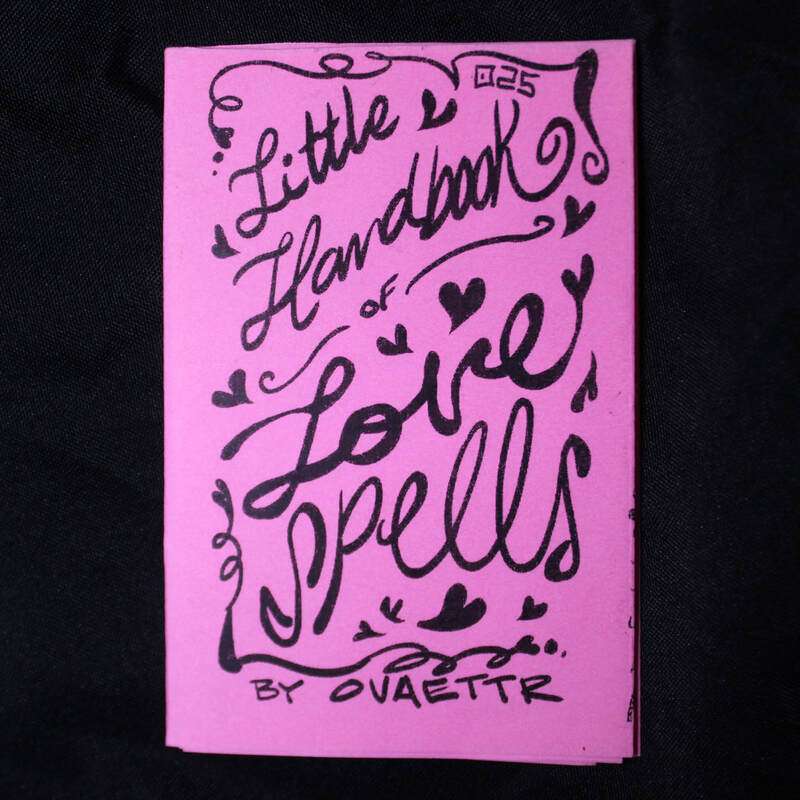 025
Little
Handbook
of
Love
Spells
BY OVAETTR